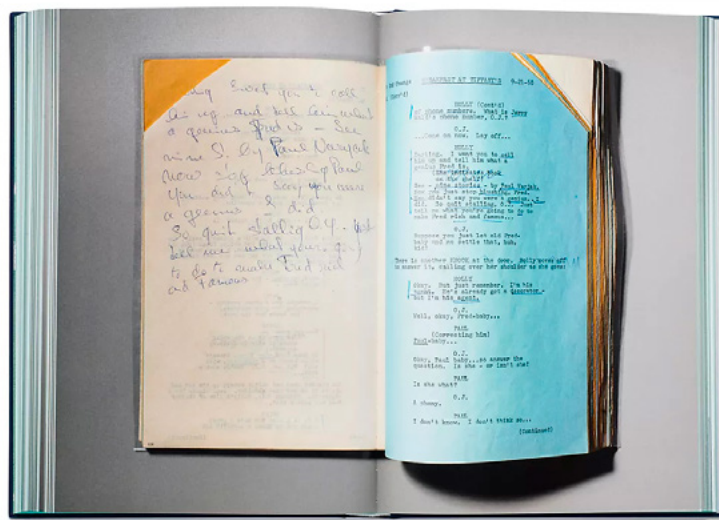 I want you to call
him up and tell him what
a genius Fred is - See
nine S. by Paul Varjak
now stop blushing Paul
You didn't say you were
a genius I did.
So quit stalling O.J. - Just
tell me what you're going
to do to make Fred rich
and famous
BREAKFAST AT TIFFANY'S 9-21-60
HOLLY (Cont'd)
phone numbers. What is Jerry
phone number, O.J.?
O.J.
...Come on now. Lay off...
HOLLY
Darling. I want you to call
him up and tell him what a
genius Fred is.
on the shelf)
See - nine stories - by Paul Varjak.
Now you just stop blushing, Fred.
You didn't say you were a genius. I
did. So quit stalling, O.J. Just
tell me what you're going to do to
make Fred rich and famous...
O.J.
Suppose you just let old Fred-
baby and me settle that, huh,
There is another KNOCK at the door. Holly moves off
to answer it, calling over her shoulder as she goes:
HOLLY
Okay. But just remember. I'm his
agent. He's already got a decorator -
but I'm his agent.
O.J.
Well, okay, Fred-baby...
PAUL
(Correcting him)
Paul-baby...
O.J.
Okay, Paul baby...so answer the
question. Is she - or isn't she?
PAUL
Is she what?
O.J.
A phony.
PAUL
I don't know. I don't think so...
(Continued)